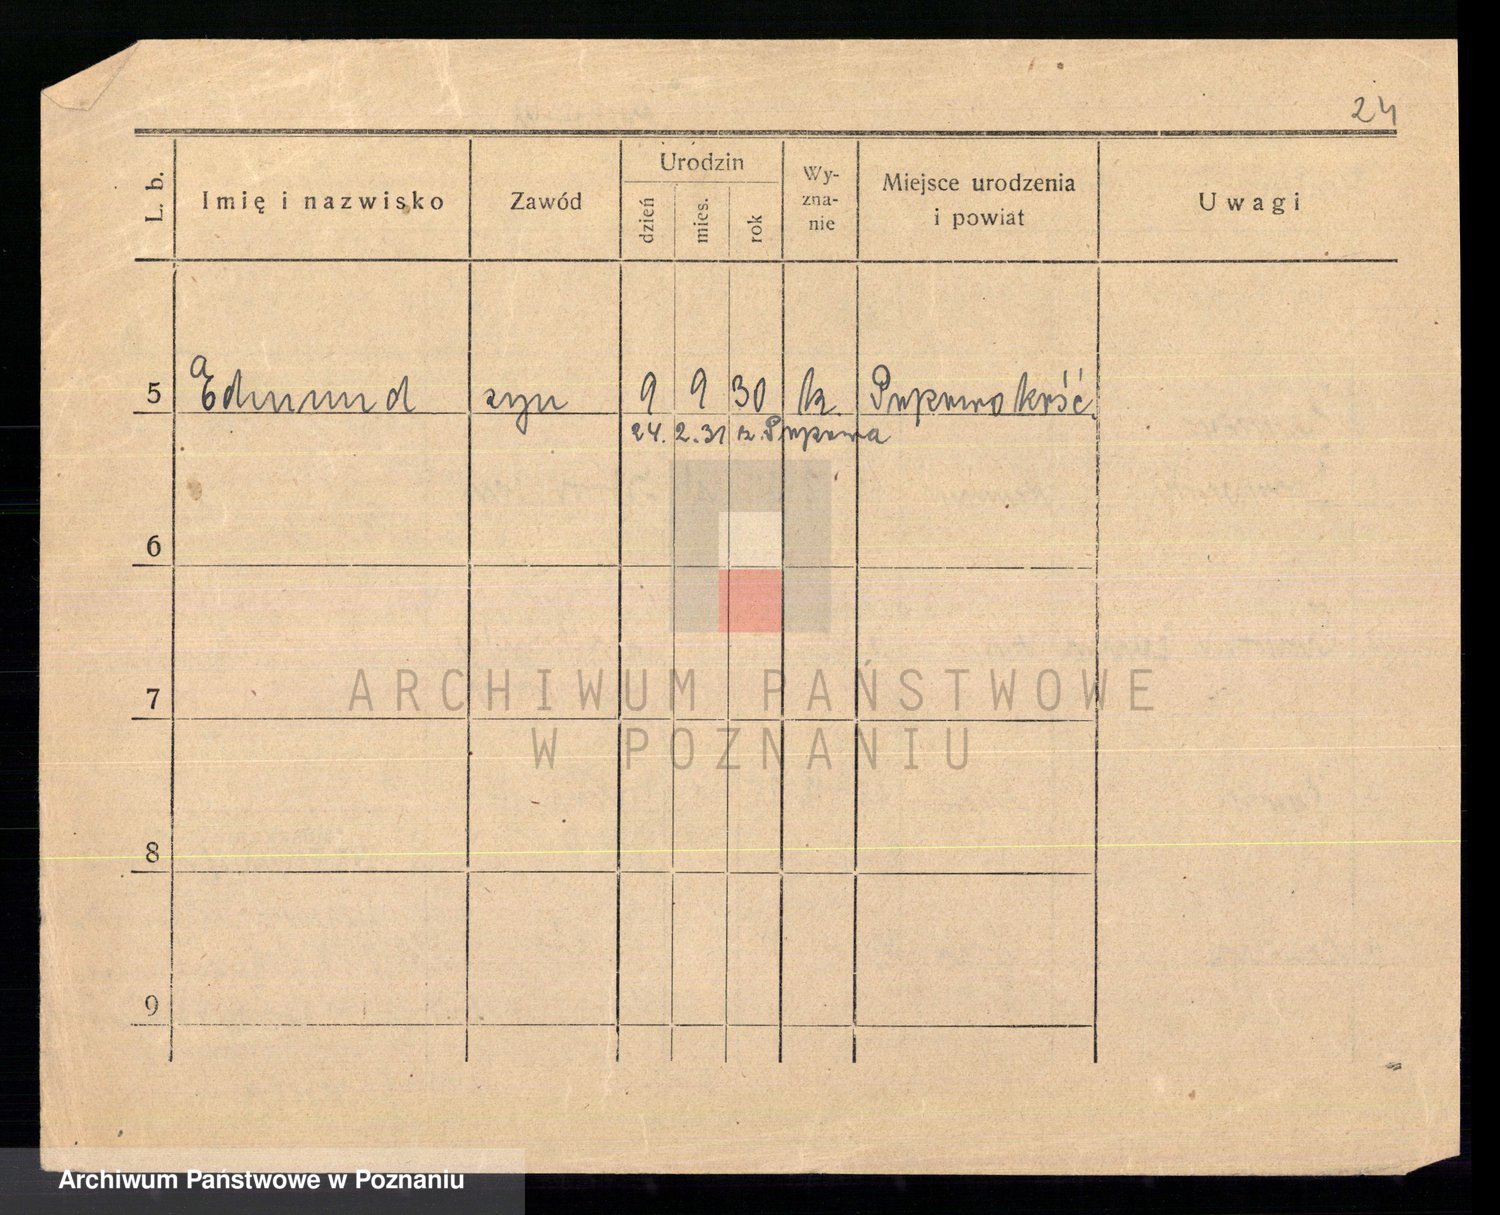 24
L. b.
Imię i nazwisko
Zawód
Urodzin
dzień
mies.
rok
Wy-
zna-
nie
Miejsce urodzenia
i powiat
Uwagi
5 a Edmund syn 9 9 30 k.
24. 2. 31 z.
6
7
8
9
ARCHIWUM PAŃSTWOWE
W POZNANIU
Archiwum Państwowe w Poznaniu